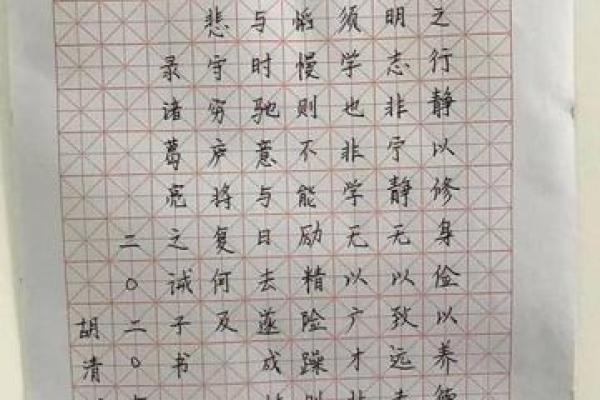 之行静以修身俭以养德
明志非宁静无以致远
须学也非学无以广才非
慆慢则不能励精险躁则
与时驰意与日去遂成
悲守穷庐将复何及
录诸葛亮之诫子书
二〇二〇年
胡清